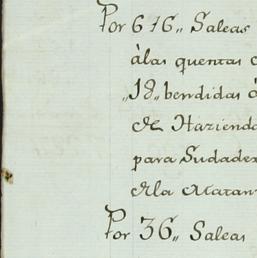 Por 616,, Saleas
àlas quentas
„18„ bendidas à
de Hazienda
para Sudade
dela Matan
Por 36,, Saleas